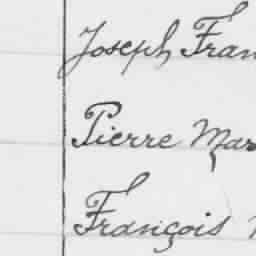 Joseph Fran
Pierre Mar
François